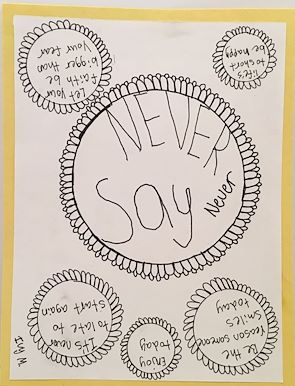 NEVER
Say
Never
Let your
faith be
bigger than
your fear
life's
to short
be happy
It's never
to late to
start again
Enjoy
today
Be the
reason someone
smiles
today
Ivy M